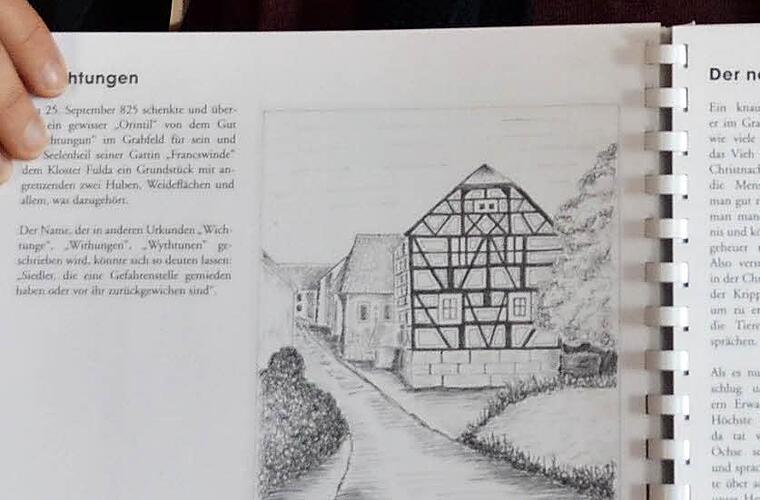 htungen
25. September 825 schenkte und über-
ein gewisser „Orintil" von dem Gut
htungun" im Grabfeld für sein und
Seelenheil seiner Gattin „Francswinde"
dem Kloster Fulda ein Grundstück mit an-
grenzenden zwei Huben, Weideflächen und
allem, was dazugehört.
Der Name, der in anderen Urkunden „Wich-
tunge", „Withungen", „Wythtunen" ge-
schrieben wird, könnte sich so deuten lassen:
„Siedler, die eine Gefahrenstelle gemieden
haben oder vor ihr zurückgewichen sind".
Der ne
Ein knau
er im Gra
wie viele
das Vieh
Christnach
die Mens
man gut
man man
nis und kö
geheuer
Also vers
in der Chr
der Kripp
um zu er
die Tiere
sprächen.
Als es mi
schlug u
ern Erwa
Höchste
da tat w
Ochse se
und sprac
te über a